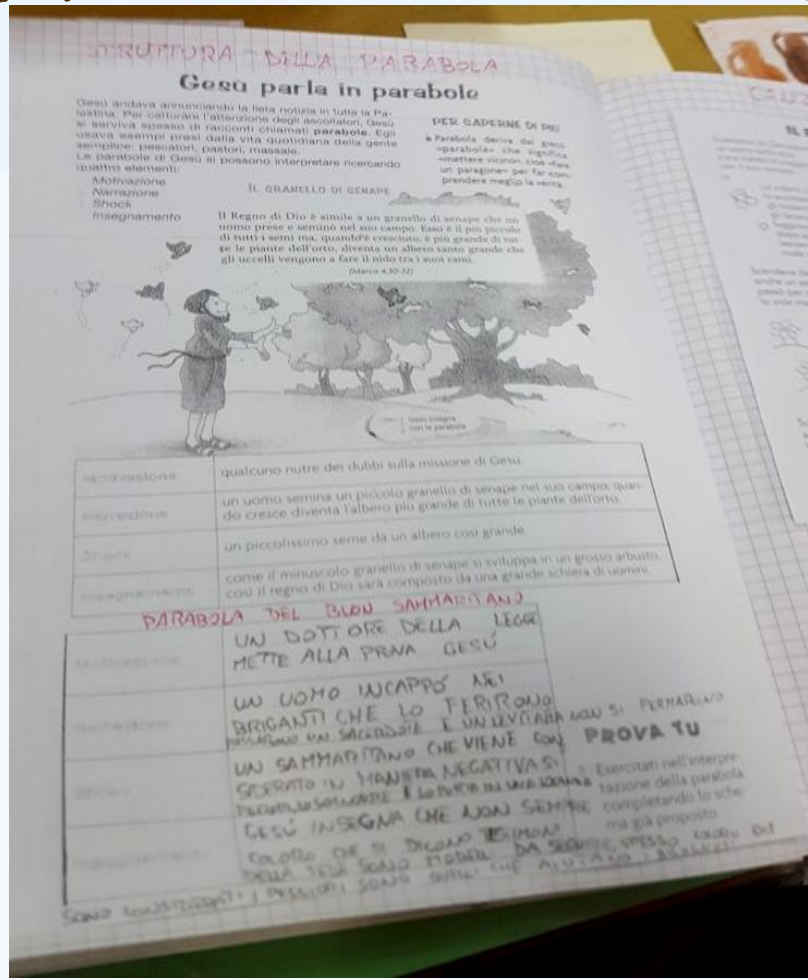 STRUTTURA DELLA PARABOLA
Gesù parla in parabole
Gesù andava annunciando la lieta notizia in tutta la Pa-
lestina. Per catturare l'attenzione degli ascoltatori, Gesù
si serviva spesso di racconti chiamati parabole. Egli
usava esempi presi dalla vita quotidiana della gente
semplice: pescatori, pastori, massaie.
Le parabole di Gesù si possono interpretare ricercando
quattro elementi:
Motivazione
Narrazione
Shock
Insegnamento
PER SAPERNE DI PIÙ
Parabola deriva dal greco
«parabolé» che significa
«mettere vicino», cioè «fare
un paragone» per far com-
prendere meglio la verità.
IL GRANELLO DI SENAPE
Il Regno di Dio è simile a un granello di senape che un
uomo prese e seminò nel suo campo. Esso è il più piccolo
di tutti i semi ma, quand'è cresciuto, è più grande di tut-
te le piante dell'orto, diventa un albero tanto grande che
gli uccelli vengono a fare il nido tra i suoi rami.
(Marco 4,30-32)
Gesù insegna
con le parabole
Motivazione
qualcuno nutre dei dubbi sulla missione di Gesù.
Narrazione
un uomo semina un piccolo granello di senape nel suo campo; quan-
do cresce diventa l'albero più grande di tutte le piante dell'orto.
Shock
un piccolissimo seme dà un albero così grande
Insegnamento
come il minuscolo granello di senape si sviluppa in un grosso arbusto,
così il regno di Dio sarà composto da una grande schiera di uomini.
PARABOLA DEL BUON SAMMARITANO
Motivazione
UN DOTTORE DELLA LEGGE
METTE ALLA PROVA GESÙ
Narrazione
UN UOMO INCAPPÒ NEI
BRIGANTI CHE LO FERIRONO
UN SACERDOTE E UN LEVITA MA NON SI FERMARONO
Shock
UN SAMMARITANO CHE VIENE CON
SIDERATO IN MANIERA NEGATIVA SI
LO SOCCORRE E LO PORTA IN UNA LOCANDA
Insegnamento
GESÙ INSEGNA CHE NON SEMPRE
COLORO CHE SI DICONO TESTIMONI
DELLA FEDE SONO MODELLI DA SEGUIRE, SPESSO COLORO CHE
SONO CONSIDERATI I PEGGIORI SONO QUELLI CHE AIUTANO I BISOGNOSI
PROVA TU
Esercitati nell'interpre-
tazione della parabola
completando lo sche-
ma già proposto.